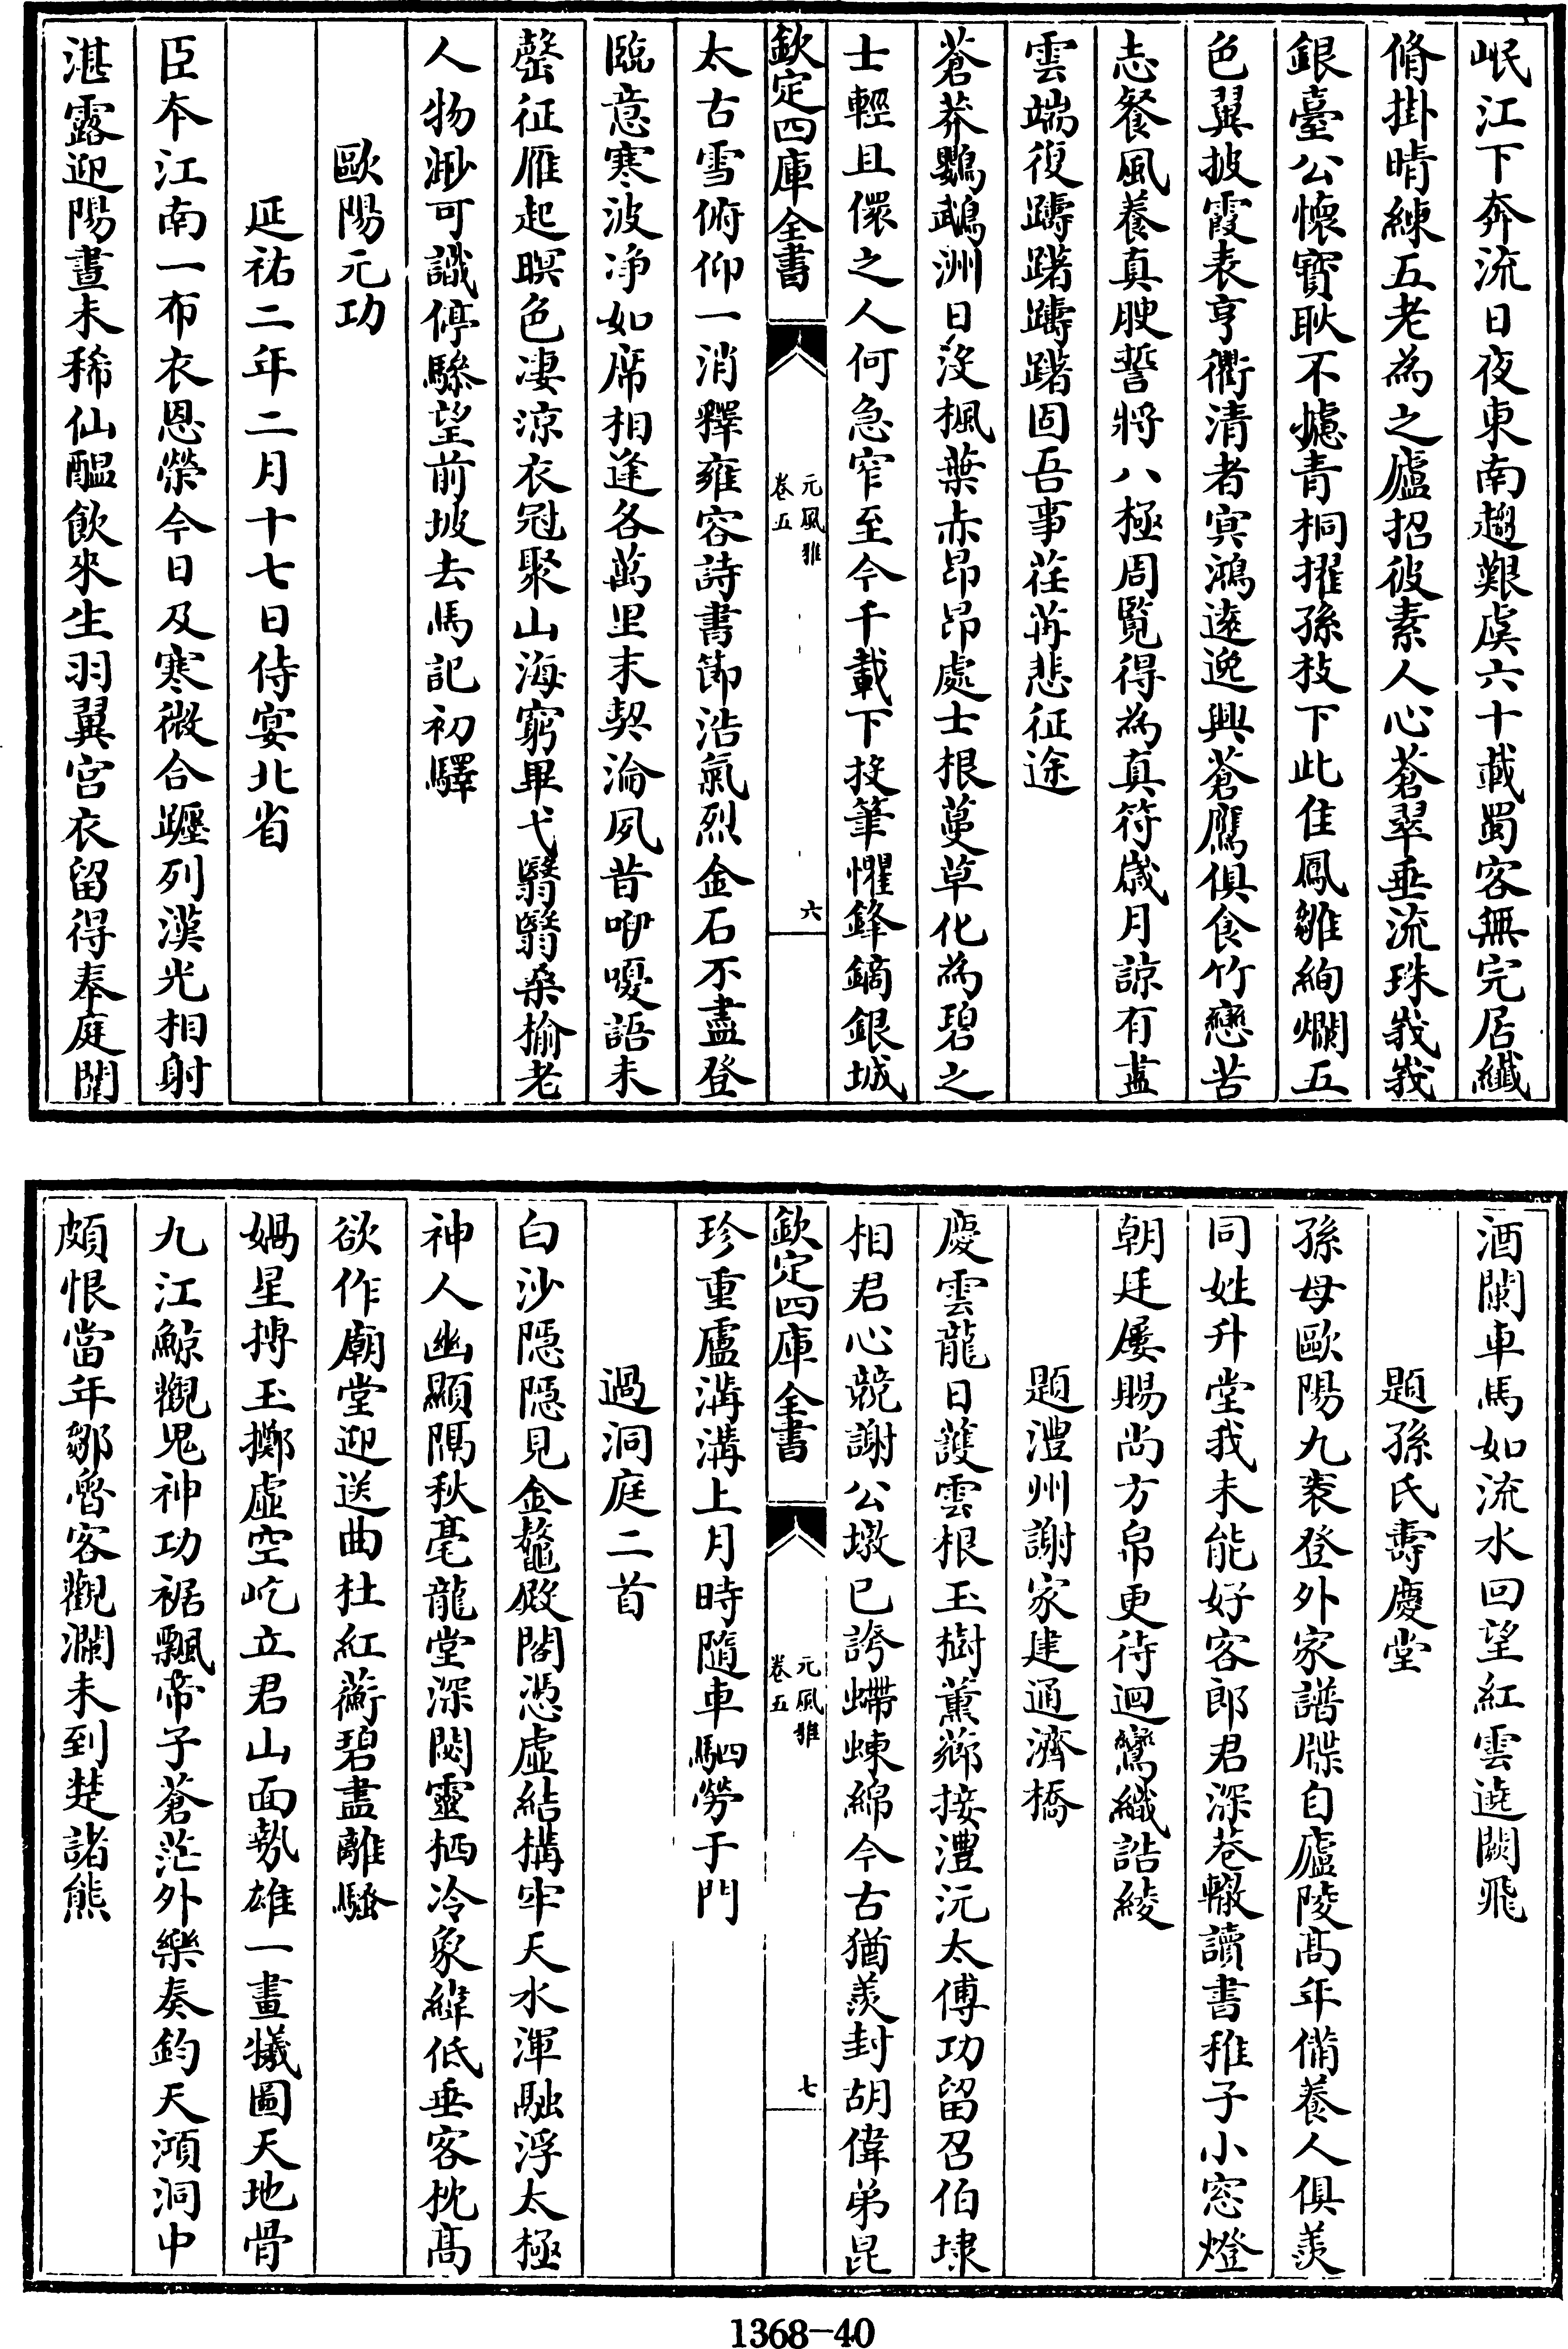 岷江下奔流日夜東南趨艱虞六十載蜀客無完居纖
脩掛晴練五老為之廬招彼素人心蒼翠垂流珠峩峩
銀臺公懷寳耿不攄青桐擢孫枝下此佳鳳雛絢爛五
色翼披霞表亨衢清者㝠鴻逵逸興蒼鷹俱食竹戀苦
志餐風養真腴誓將八極周覽得為真符嵗月諒有盡
雲端復躊躇躊躇固吾事荏苒悲征途
蒼莽鸚鵡洲日沒楓葉赤昂昂處士根蔓草化為碧之
士輕且儇之人何急窄至今千載下投筆懼鋒鏑銀城
欽定四庫全書
元風雅
卷五
六
太古雪俯仰一消釋雍容詩書節浩氣烈金石不盡登
臨意寒波净如席相逢各萬里末契淪夙昔咿嚘語未
罄征雁起暝色凄涼衣冠聚山海窮畢弋翳翳桑榆老
人物渺可識停驂望前坡去馬記初驛
歐陽元功
延祐二年二月十七日侍宴北省
臣本江南一布衣恩榮今日及寒微合躔列漢光相射
湛露迎陽晝未稀仙醖飲來生羽翼宫衣留得奉庭闈
酒闌車馬如流水回望紅雲遶闕飛
題孫氏壽慶堂
孫母歐陽九袠登外家譜牒自廬陵髙年備養人俱羨
同姓升堂我未能好客郎君深巷轍讀書稚子小窓燈
朝廷屢賜尚方帛更待迴鸞織誥綾
題澧州謝家建通濟橋
慶雲龍日䕶雲根玉樹薫薌接澧沅太傅功留召伯埭
相君心競謝公墩已誇螮蝀綿今古猶羨封胡偉弟昆
欽定四庫全書
元風雅
卷五
七
珍重盧溝溝上月時隨車駟勞于門
過洞庭二首
白沙隠隠見金鼇殿閣憑虚結構牢天水渾融浮太極
神人幽顯隔秋毫龍堂深閟靈栖冷象緯低垂客枕髙
欲作廟堂迎送曲杜紅蘅碧盡離騷
媧星摶玉擲虚空屹立君山面勢雄一畫犧圖天地骨
九江鯨觀鬼神功裾飄帝子蒼茫外樂奏鈞天澒洞中
頗恨當年鄒魯客觀瀾未到楚諸熊
1368-40